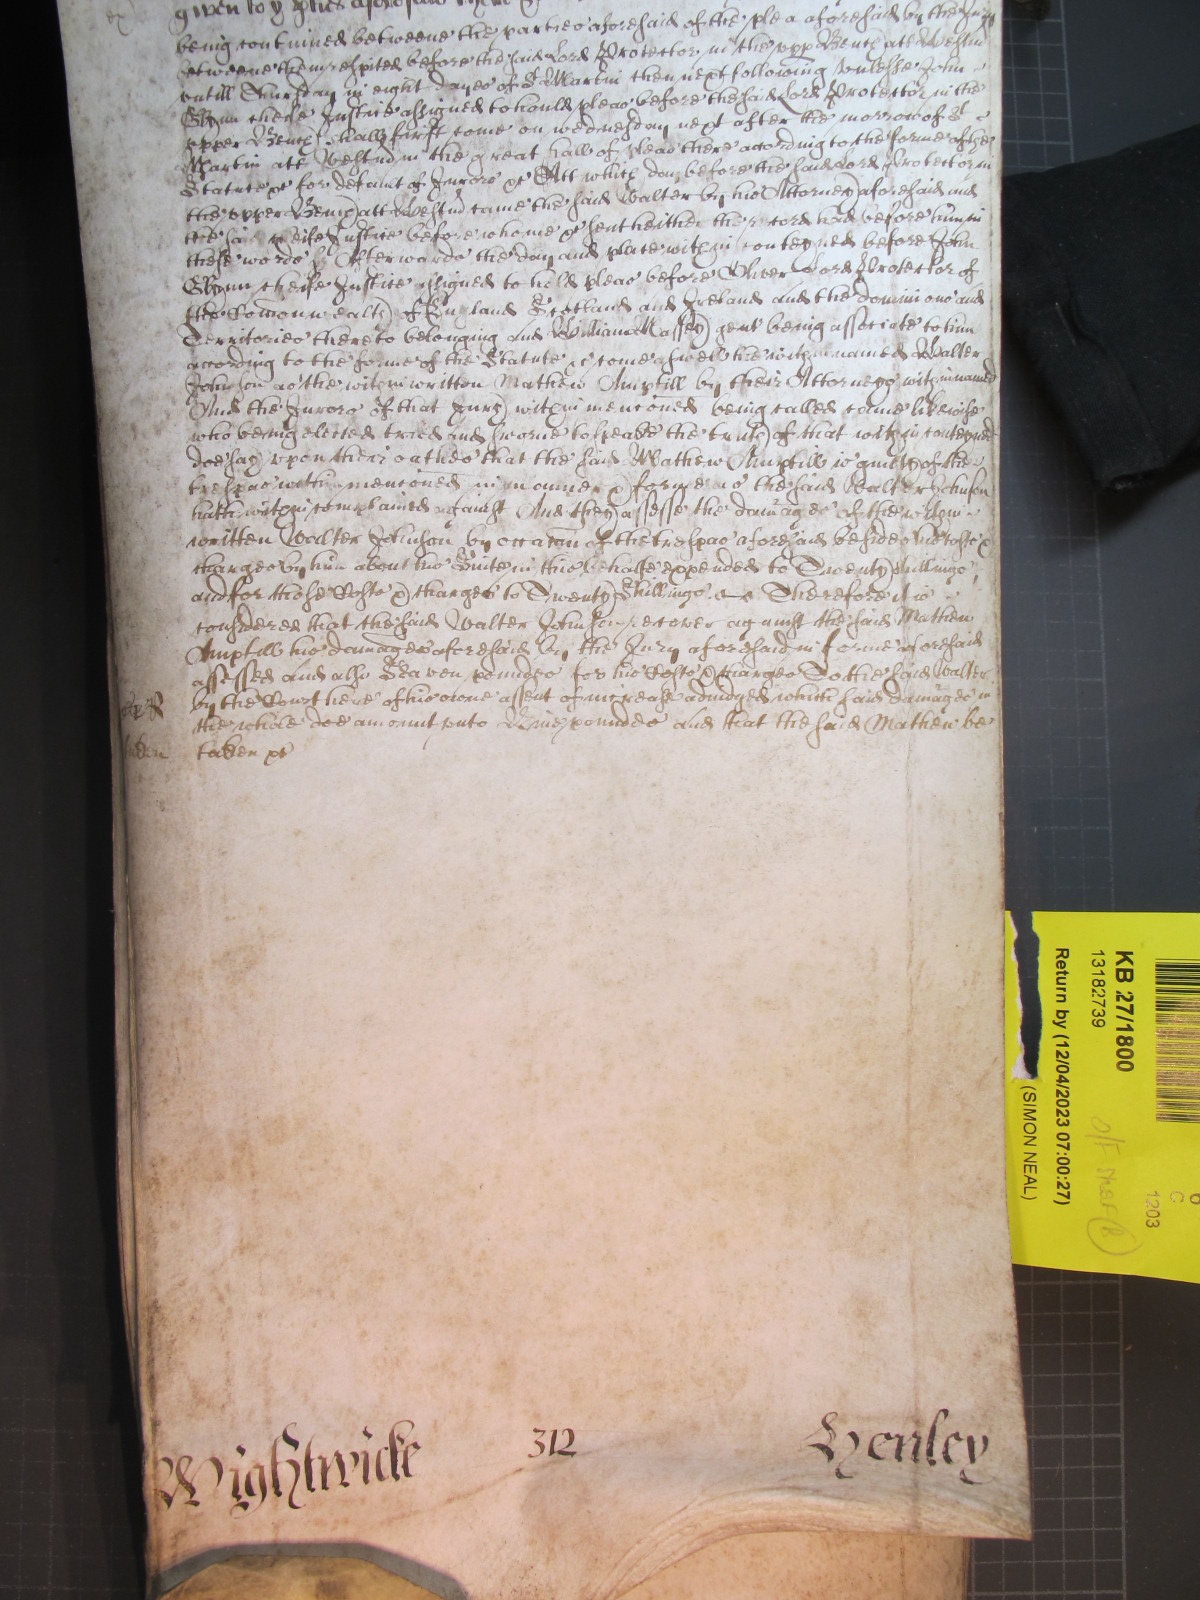 given to y pties aforesaid there &c
being continued betweene the parties aforesaid of the plea aforesaid by the Jury
betweene them respited before the said Lord Protector in the upp Bench att Westm
untill Thursday in eight dayes of St Martin then next following unlesse John
Glynn cheife Justice assigned to hould pleas before the said Lord Protector in the
upper Bench shall first come on wednesday next after the morrow of St
Martin att Westm in the great hall of pleas there according to the forme of the
Statute &c for default of Jurors &c Att which day before the said Lord Protector in
the upper Bench att Westm came the said Walter by his Attorney aforesaid and
the said cheife Justice before whome &c sent heither the record had before him in
these words Afterwards the day and place within conteyned before John
Glynn cheife Justice assigned to hold pleas before Oliver Lord Protector of
the Comonwealth of England Scotland and Ireland and the dominions and
Territories thereto belonging and William Massey gent being associate to him
according to the forme of the Statute &c come aswell the within named Walter
Johnson as the within written Mathew Ampttill by their Attorneys within named
And the Jurors of that Jury within menconed being called came likewise
who being elected tried and sworne to speake the truth of that within conteyned
doe say upon their oathes that the said Mathew Ampttill is guilty of the
trespas within menconed in manner & forme as the said Walter Johnson
hath within complained against And they assesse the damages of the within
written Walter Johnson by occacon of the trespas aforesaid besides his costs &
charges by him about his Suite in this behalfe expended to Twenty shillings
and for those Costs & charges to Twenty Shillings Therefore it is
considered that the said Walter Johnson recover against the said Mathew
Ampttill his damages aforesaid by the Jury aforesaid in forme aforesaid
assessed and also Seaven poundes for his Costs & charges To the said Walter
by the Court here of his owne assent of increase adiudged which said damages in
the whole doe amount unto Nine poundes And that the said Mathew be
taken &c
Wightwicke 312 Henley
KB 27/1800
13182739
Return by (12/04/2023 07:00:27)
(SIMON NEAL)
1203